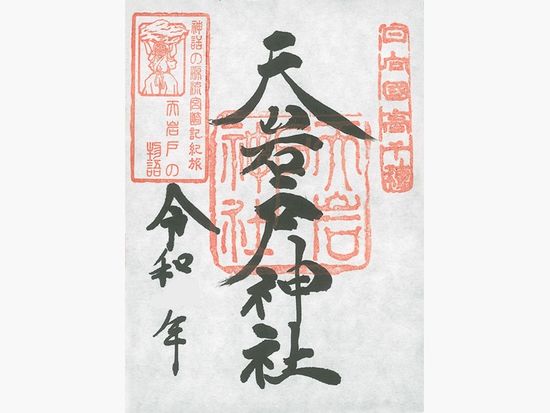 日向國高千穂
天岩戸神社
天岩戸
神社
神話の源流宮崎記紀旅
天岩戸の
物語
令和 年